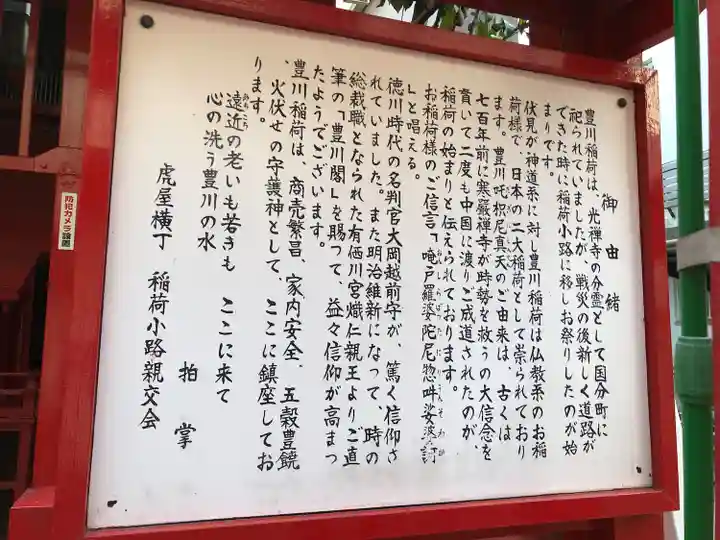 御由緒
豊川稲荷は、光禅寺の分霊として国分町に
祀られていましたが、戦災の後新しく道路が
できた時に稲荷小路に移しお祭りしたのが始
まりです。
伏見が、神道系に対し豊川稲荷は仏教系のお稲
荷様で、日本の二大稲荷として崇られており
ます。豊川吒枳尼真天のご由来は、古くは
七百年前に寒巖禅寺が時勢を救うの大信念を
貫いて二度も中国に渡りご成道されたのが、
稲荷の始まりと伝えられております。
お稲荷様のご信言「唵尸羅婆陀尼惣吽娑婆訶
」と唱える。
徳川時代の名判官大岡越前守が、篤く信仰さ
れていました。また明治維新になって、時の
総裁職となられた有栖川宮熾仁親王よりご直
筆の「豊川閣」を賜つて、益々信仰が高まっ
たようでございます。
豊川稲荷は、商売繁昌、家内安全、五穀豊饒
、火伏せの守護神として、ここに鎮座してお
ります。
遠近の老いも若きも ここに来て
心の洗う豊川の水
拍掌
虎屋横丁 稲荷小路親交会
防犯カメラ設置